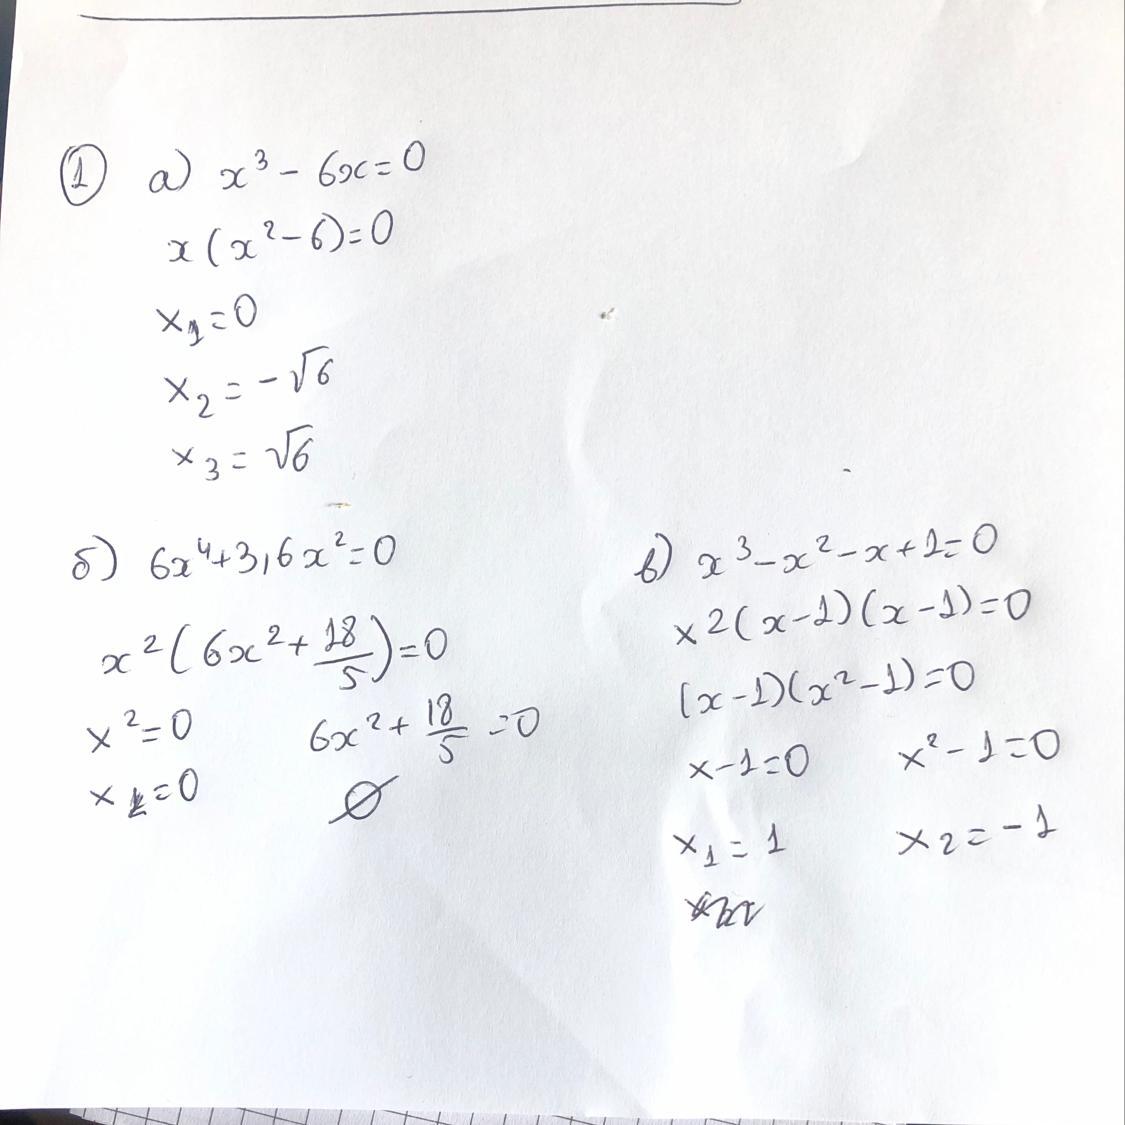 ① а) x³ - 6x = 0
x(x² - 6) = 0
x₁ = 0
x₂ = -√6
x₃ = √6
б) 6x⁴ + 3,6x² = 0
x²(6x² + 18/5) = 0
x² = 0 6x² + 18/5 = 0
x = 0 ∅
в) x³ - x² - x + 1 = 0
x2(x - 1)(x - 1) = 0
(x - 1)(x² - 1) = 0
x - 1 = 0 x² - 1 = 0
x₁ = 1 x₂ = -1